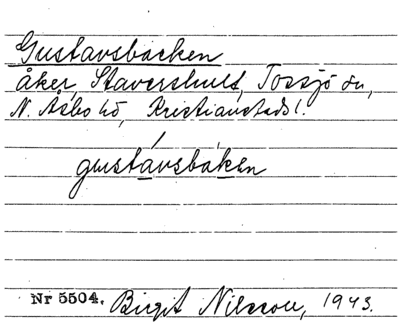 Gustavsbacken
åker, Stavershult, Tossjö sn,
N. Åsbo hd, Kristianstads l.
gustávsbaken
Nr 5504. Birgit Nilsson, 1943.